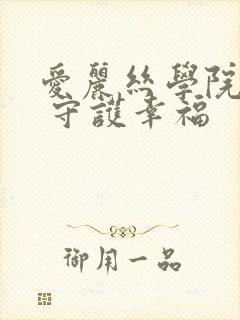 愛麗絲學院
守護幸福
御用一品